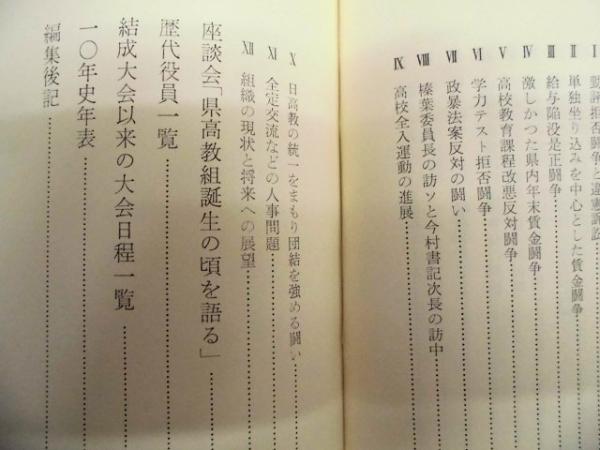 I 勤評拒否闘争と違憲訴訟
II 単独坐り込みを中心とした賃金闘争
III 給与陥没是正闘争
IV 激しかつた県内年末賃金闘争
V 高校教育課程改悪反対闘争
VI 学力テスト拒否闘争
VII 政暴法案反対の闘い
VIII 榛葉委員長の訪ソと今村書記次長の訪中
IX 高校全入運動の進展
X 日高教の統一をまもり団結を強める闘い
XI 全定交流などの人事問題
XII 組織の現状と将来への展望
座談会「県高教組誕生の頃を語る」
歴代役員一覧
結成大会以来の大会日程一覧
一〇年史年表
編集後記